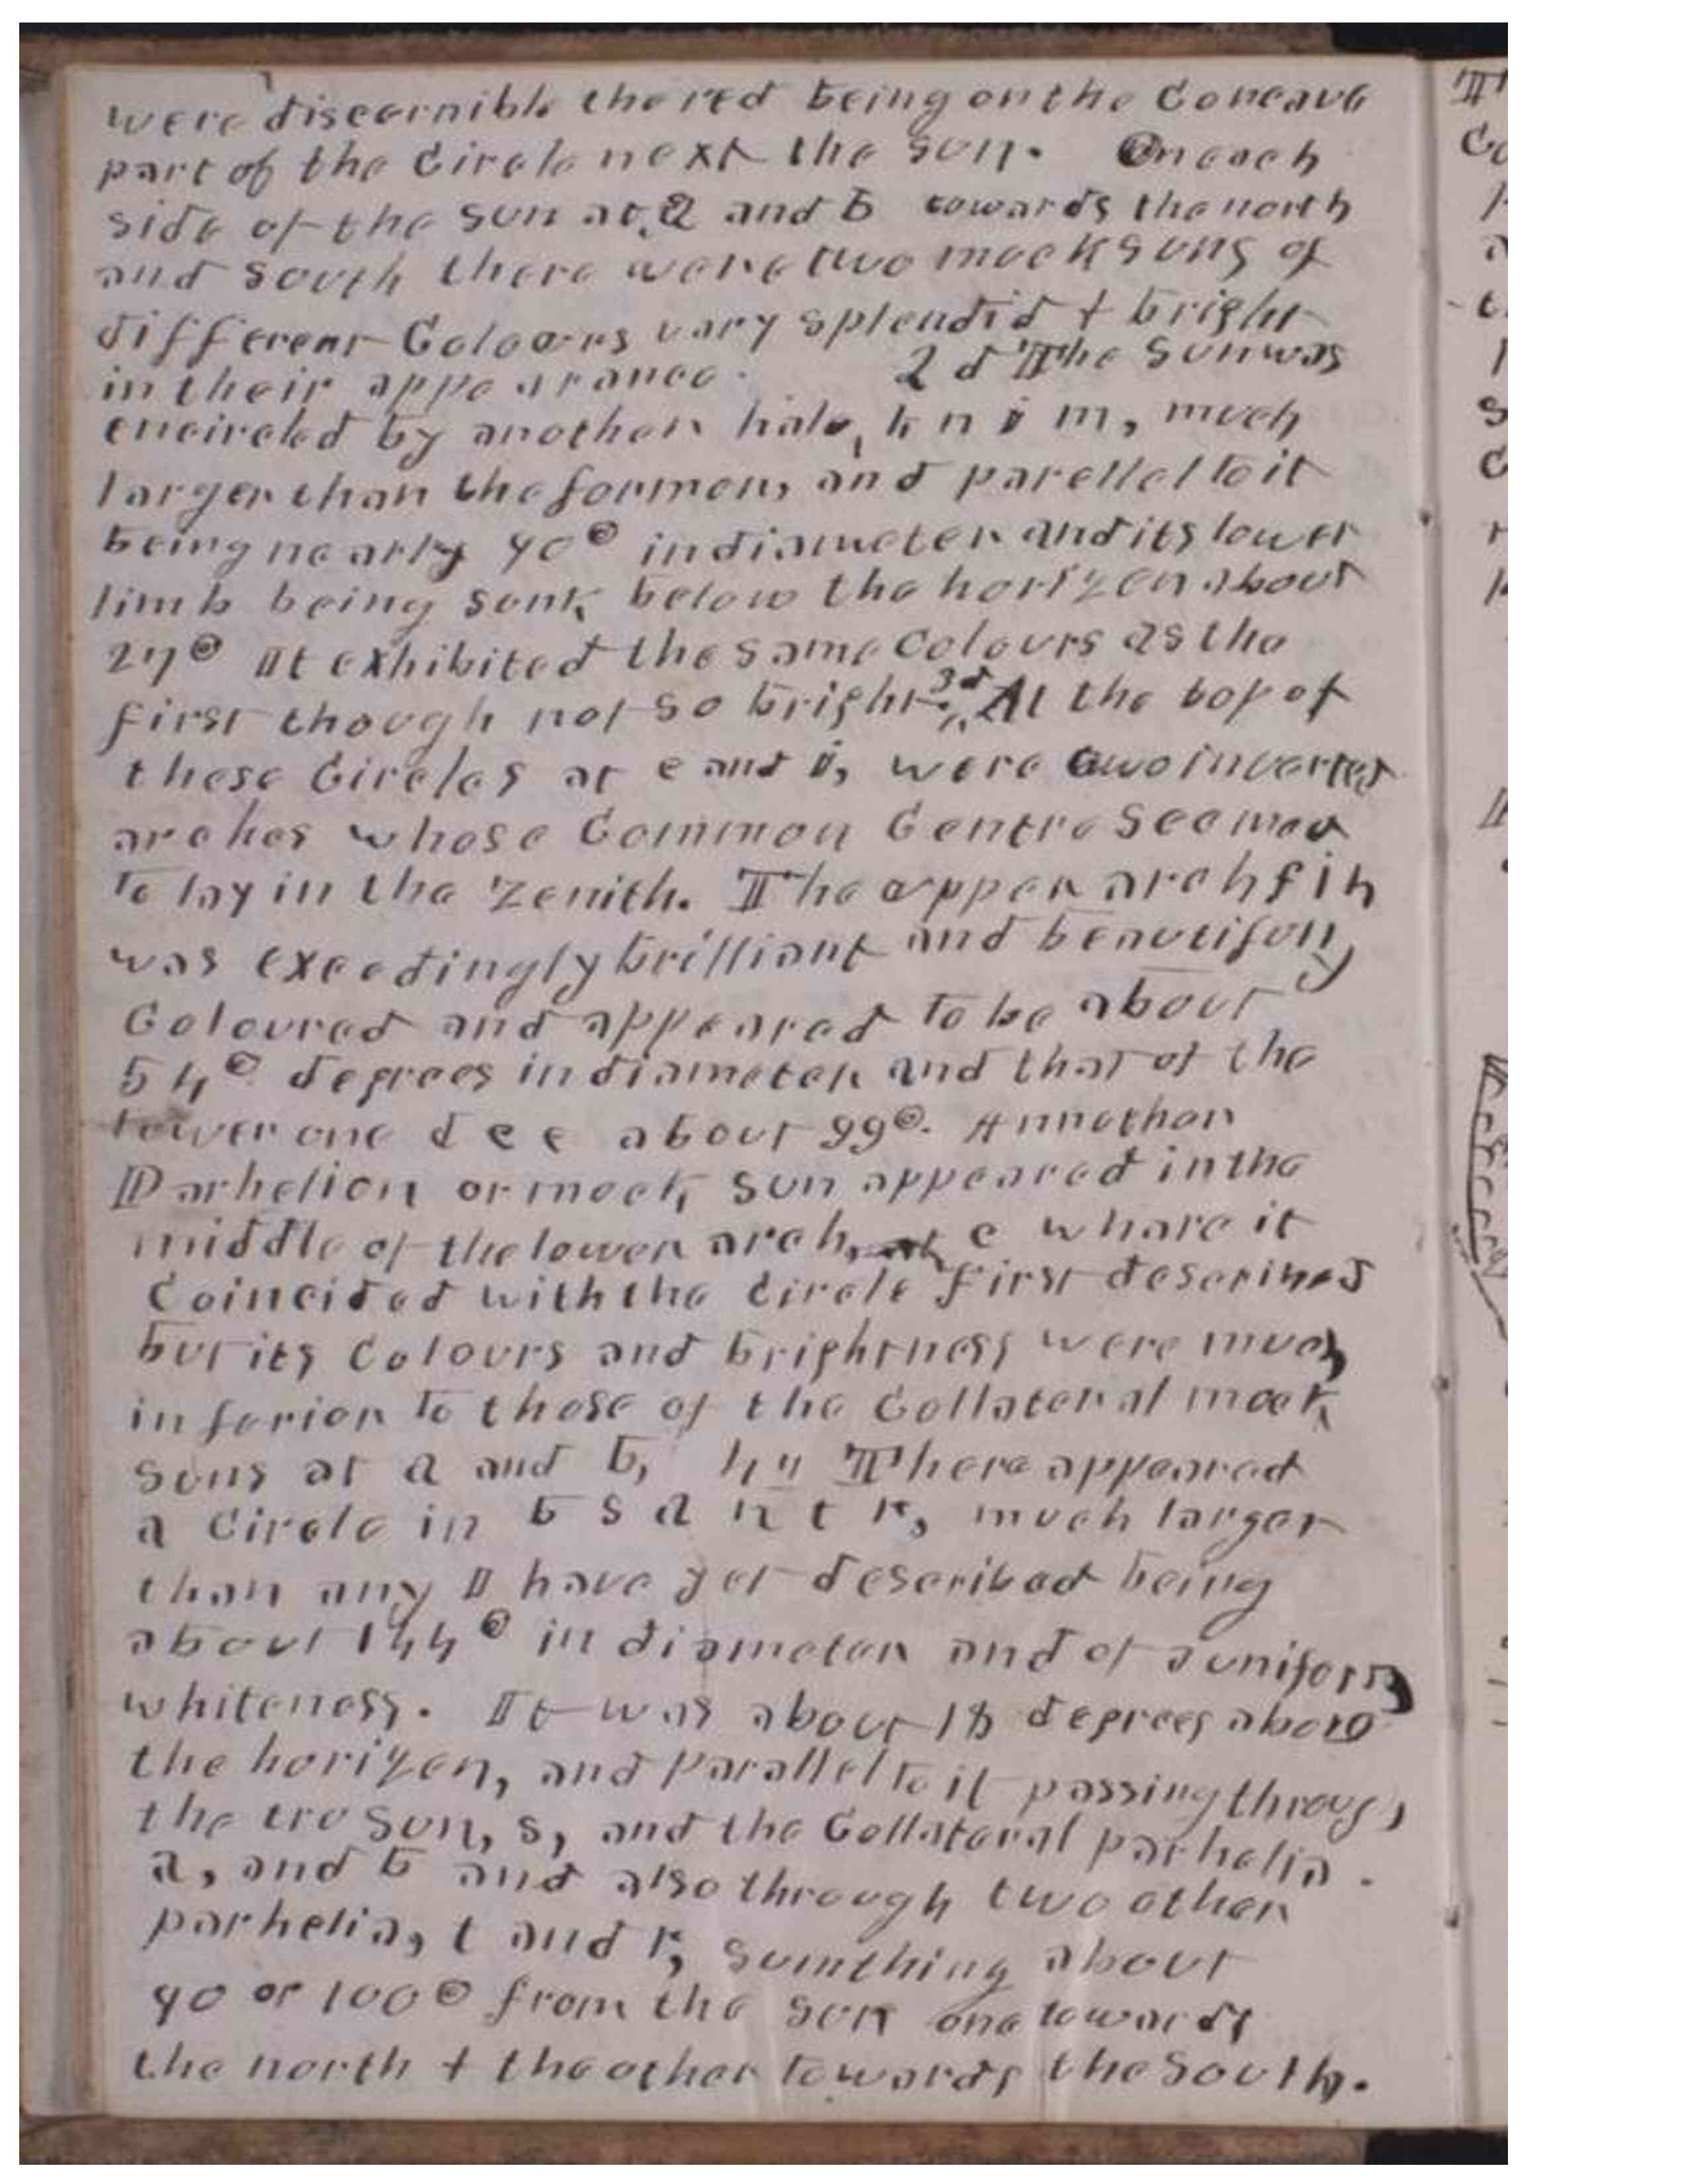 were discernible the red being on the Concave
part of the Circle next the sun. On each
side of the sun at, a and b towards the north
and South there were two mock suns of
different Colours vary splendid + bright
in their appearance. 2d The Sun was
encircled by another halo, h n i m, much
larger than the former, and parellel to it
being nearly 90° in diameter and its lower
limb being sunk below the horizen about
27° It exhibited the same Colours as the
first though not so bright. 3d At the top of
these Circles at e and i, were two inverted
arches whose Common Centre Seemed
to lay in the Zenith. The upper arch f i h
was exeedingly brilliant and beautifully
Coloured and appeared to be about
54° degrees in diameter and that of the
lower one d e e about 99°. Annother
Parhelion or mock sun appeared in the
middle of the lower arch, at e whare it
Coincided with the Circle first described
but its Colours and brightness were much
inferior to those of the Collateral mock
suns at a and b, 4th There appeared
a Circle in b s a n t r, much larger
than any I have yet described being
about 144° in diameter and of a uniform
whiteness. It was about 18 degrees above
the horizen, and Parallel to it passing through
the tru Sun, s, and the Collateral parhelia.
a, and b and also through two other
parhelia, t and r, sumthing about
90 or 100° from the sun one towards
the north + the other towards the South.